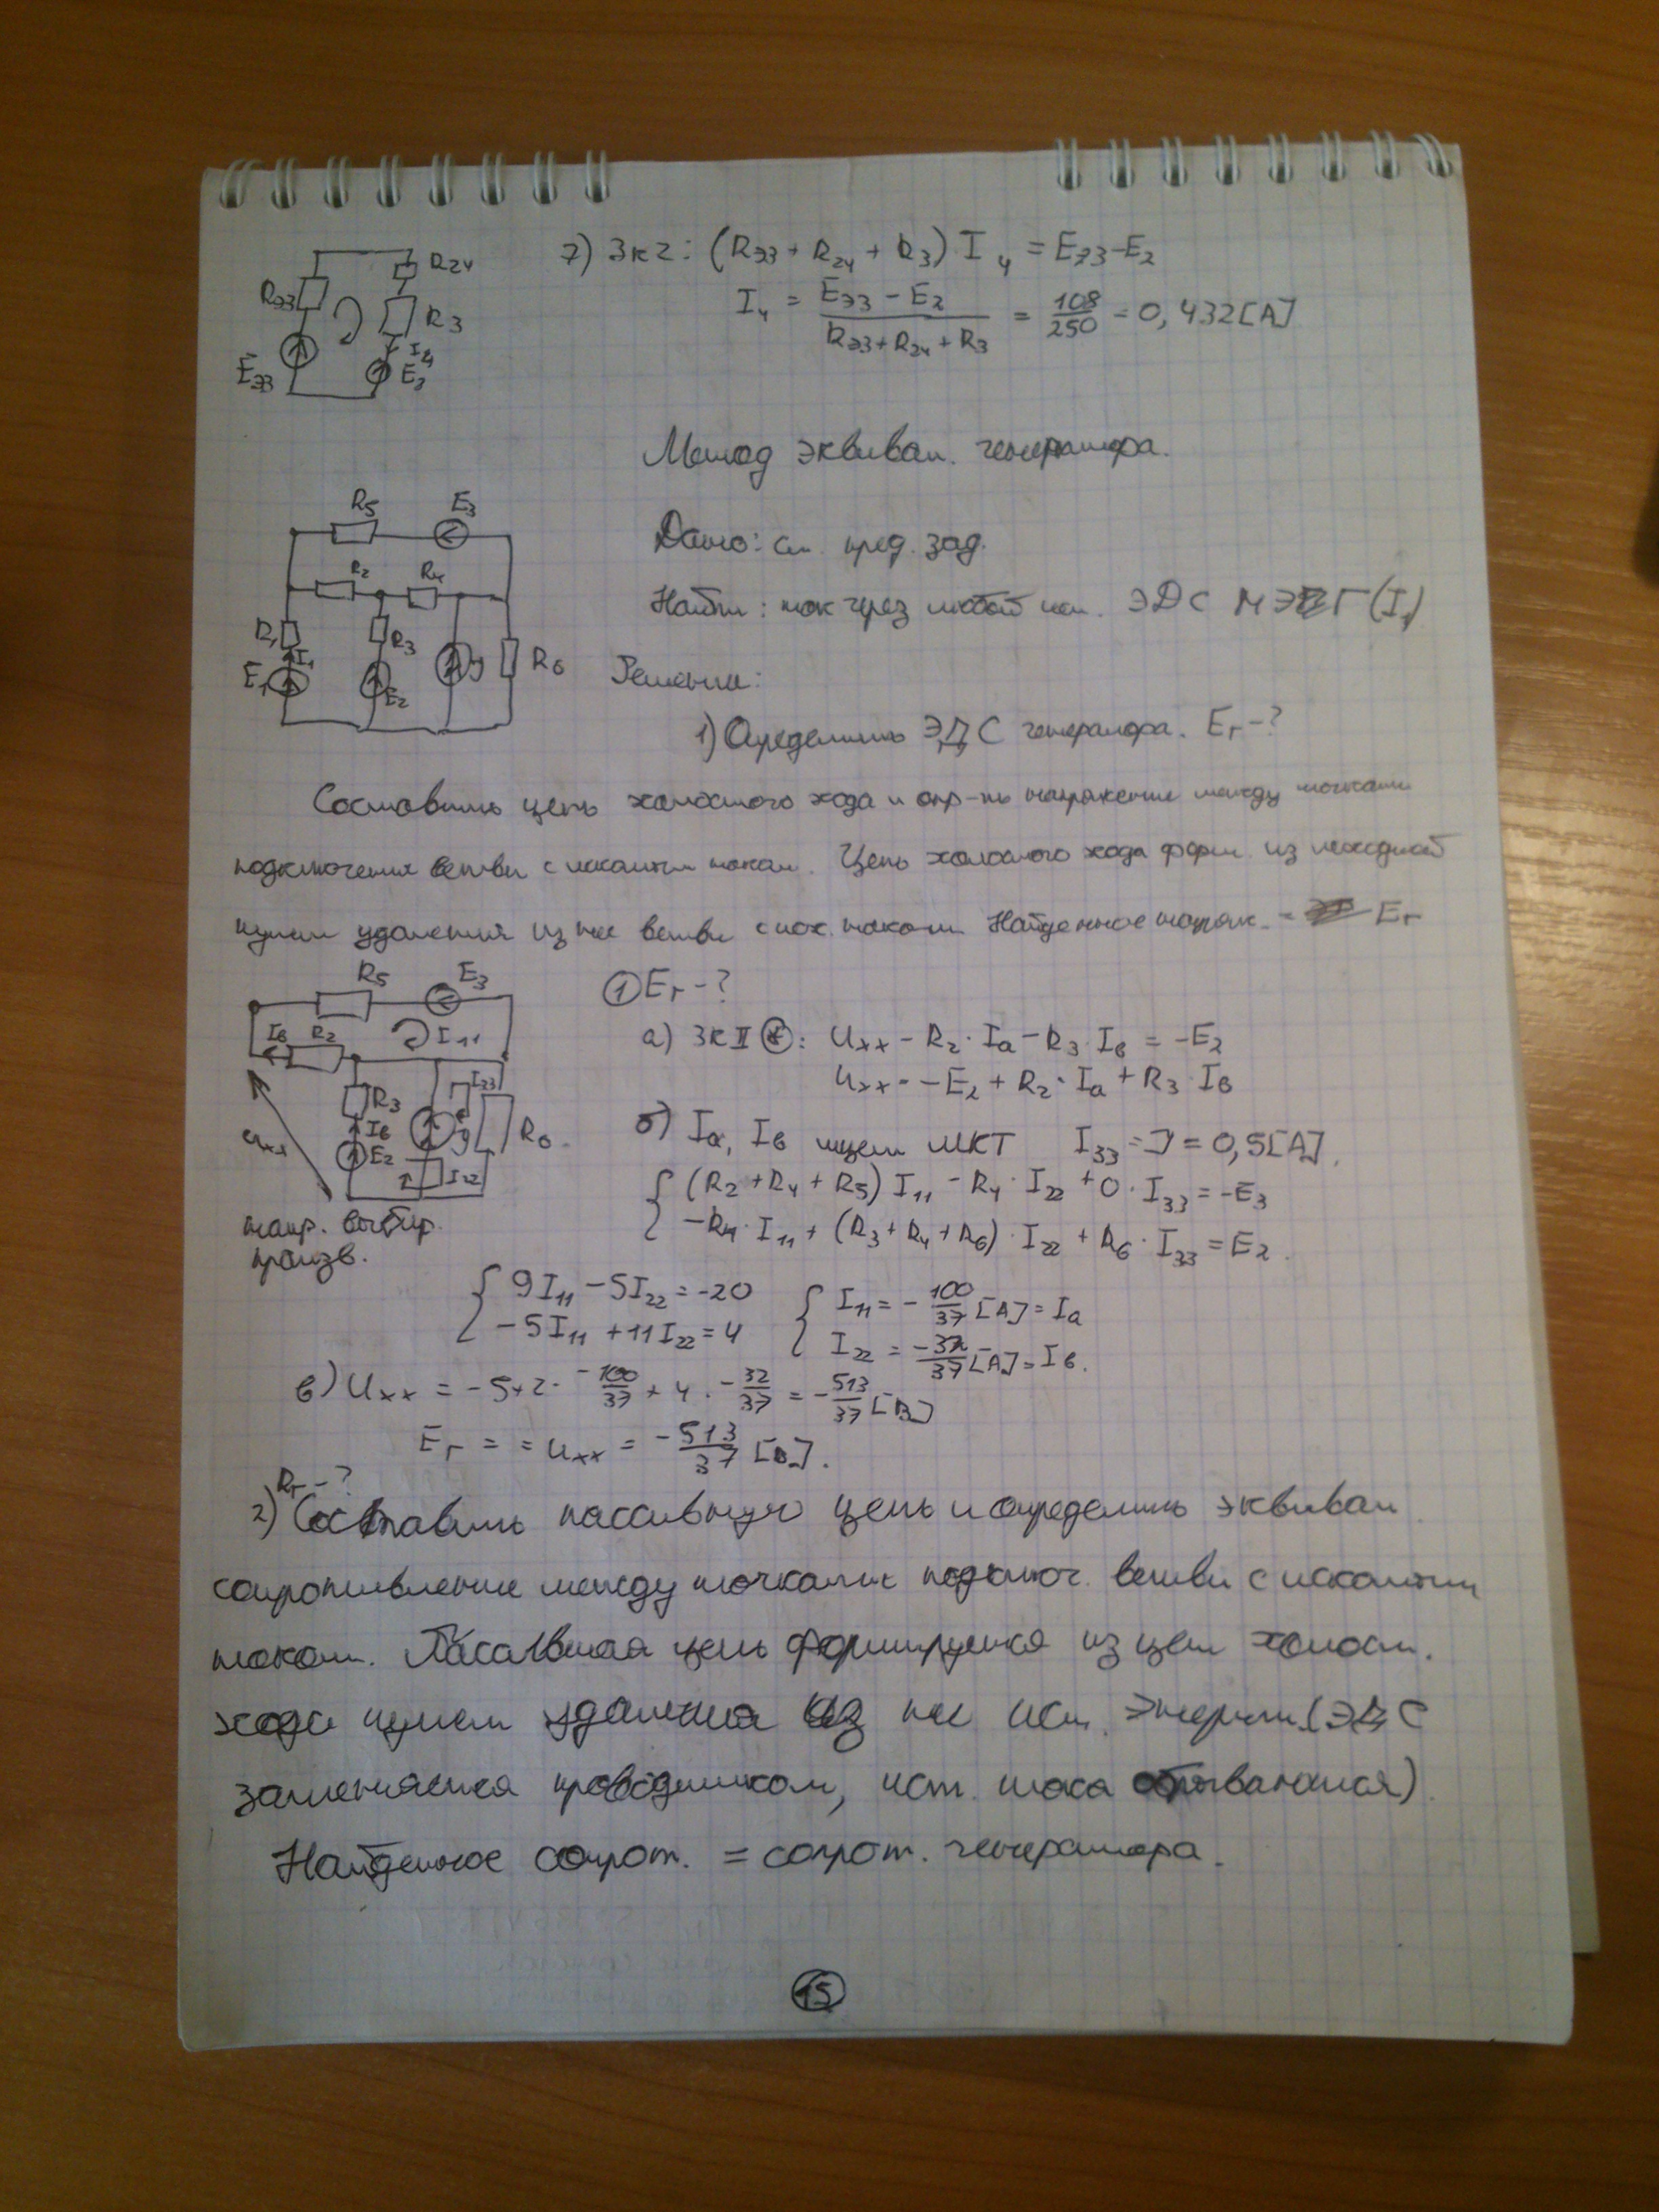 7) ЗК2: (Rэ3 + R24 + R3) · I4 = Eэ3 – E2
I4 = (Eэ3 – E2) / (Rэ3 + R24 + R3) = 108/250 = 0,432 [A]
R24
Rэ3
R3
I4
Eэ3
E2
Метод эквивал. генератора.
R5 E3
R2 R4
R1 R3
I1
E1 E2 J R6
Дано: см. пред. зад.
Найти: ток через любой ист. ЭДС МЭГ (I1)
Решение:
1) Определить ЭДС генератора. Eг – ?
Составить цепь холостого хода и опр-ть напряжение между точками
подключения ветви с искомым током. Цепь холостого хода форм. из исходной
путем удаления из нее ветви с иск. током. Найденное напряж. = Eг
R5 E3
Iв R2 I11
R3 I33
Iв J R6
Uxx E2 I22
напр. выбир.
произв.
① Eг – ?
а) ЗК II: Uxx – R2 · Ia – R3 · Iв = –E2
Uxx = –E2 + R2 · Ia + R3 · Iв
б) Ia, Iв ищем МКТ I33 = J = 0,5 [A].
(R2 + R4 + R5) I11 – R4 · I22 + 0 · I33 = –E3
–R4 · I11 + (R3 + R4 + R6) · I22 + R6 · I33 = E2.
9I11 – 5I22 = –20 I11 = –100/37 [A] = Ia
–5I11 + 11I22 = 4 I22 = –32/37 [A] = Iв.
в) Uxx = –5 + 2 · –100/37 + 4 · –32/37 = –513/37 [В]
Eг = = Uxx = –513/37 [В].
Rг – ?
2) Составить пассивную цепь и определить эквивал.
сопротивление между точками подключ. ветви с искомым
током. Пассивная цепь формируется из цепи холост.
хода путем удаления из нее ист. энергии (ЭДС
заменяется проводником, ист. тока обрываются)
Найденное сопрот. = сопрот. генератора.
15